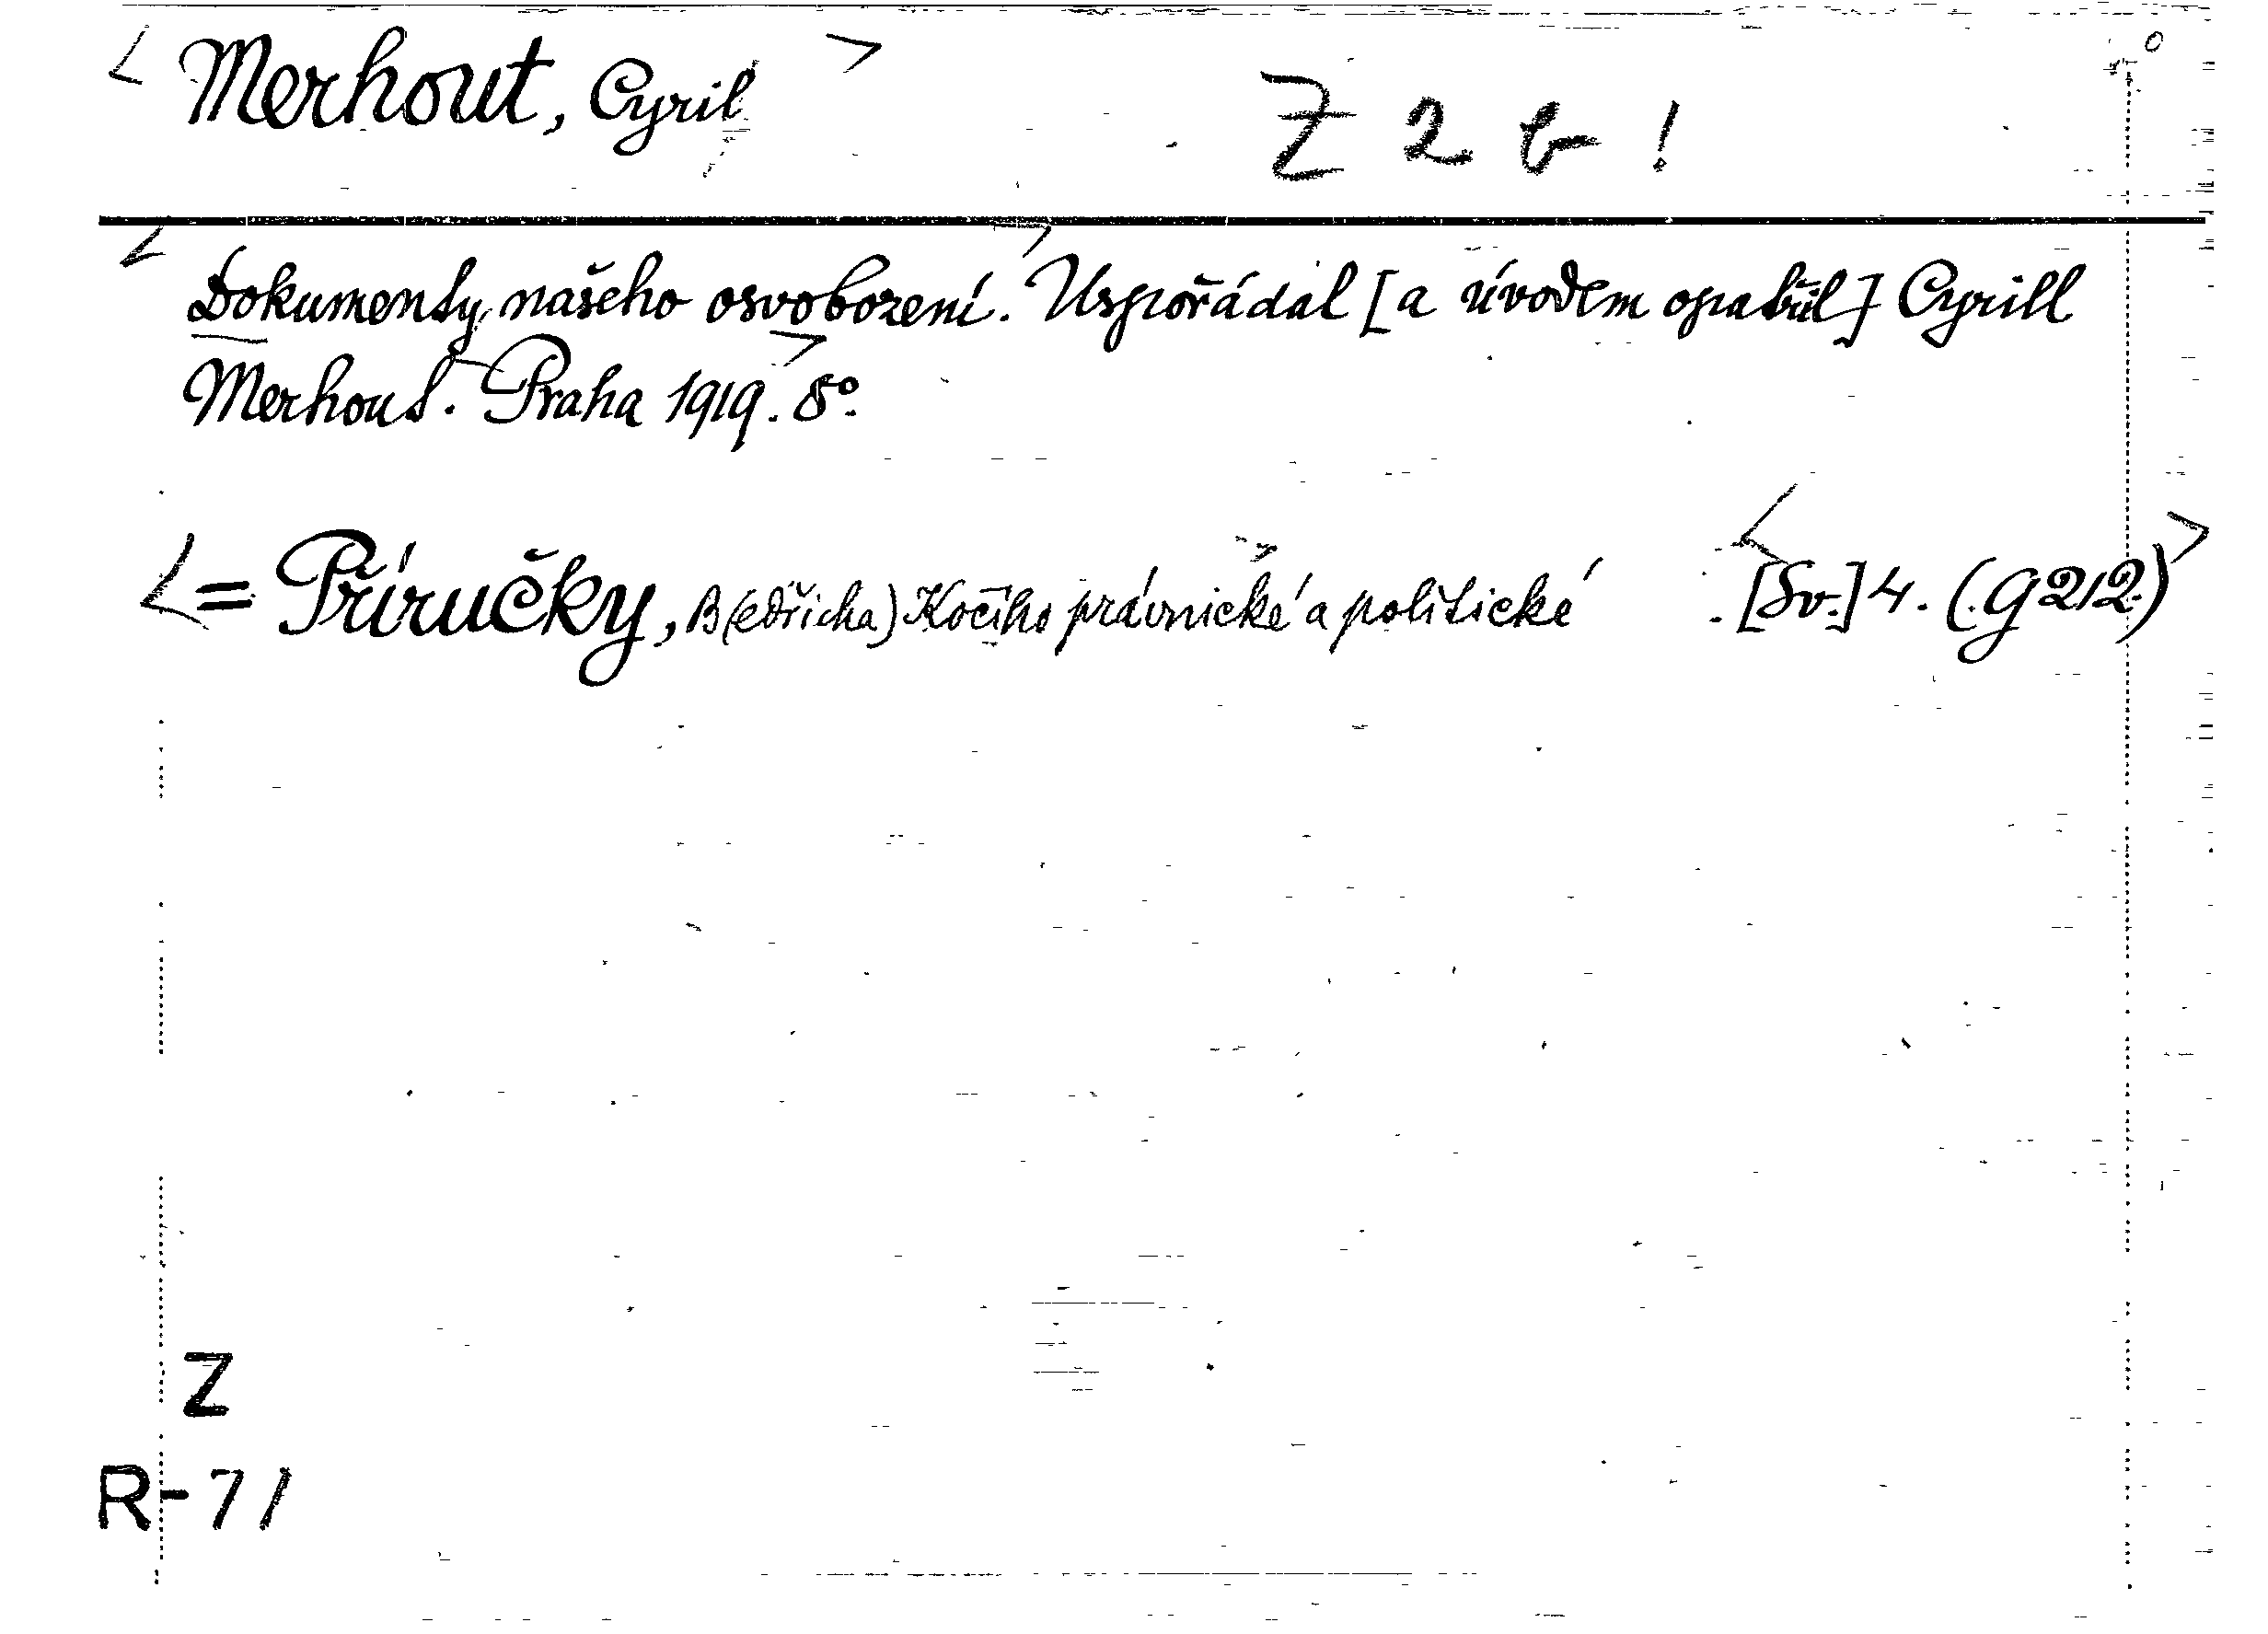 < Merhout, Cyril > Z 2 b !
< Dokumenty našeho osvobození. > Uspořádal [a úvodem opatřil] Cyrill
Merhout. Praha 1919. > 8°.
< = Příručky, B(edřicha) Kočího právnické a politické < [Sv.] 4. (G 212) >
Z
R-71